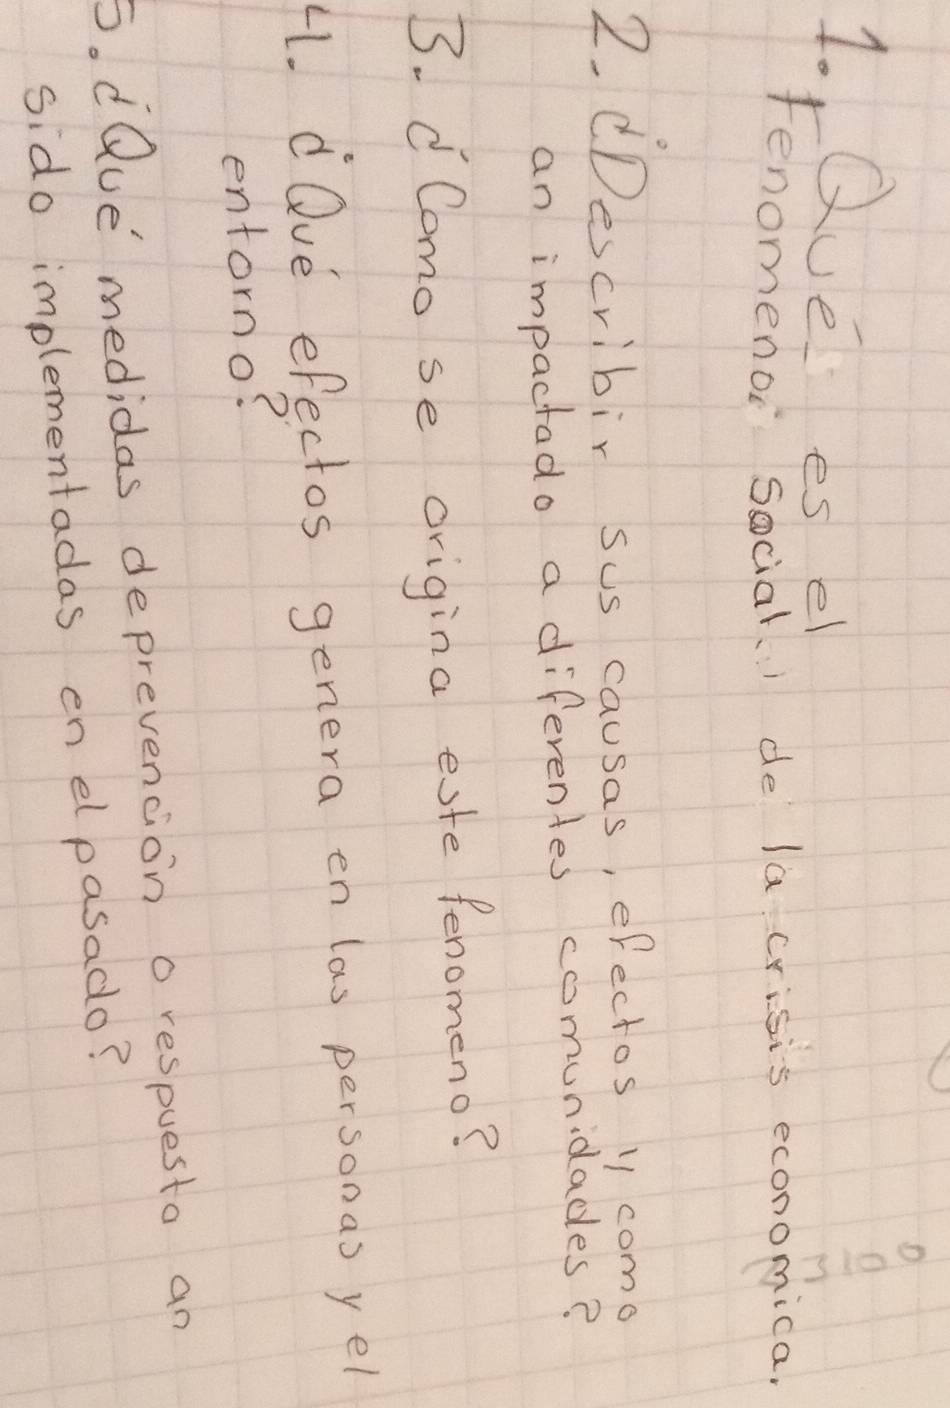 1. Qué es el
Fenomenor social de la crisis economica.
2. ¿Describir sus causas, efectos y como
an impactado a diferentes comunidades?
3. ¿Como se origina este fenomeno?
4. ¿Qué efectos genera en las personas y el
entorno?
5. ¿Qué medidas de prevención o respuesta an
sido implementadas en el pasado?